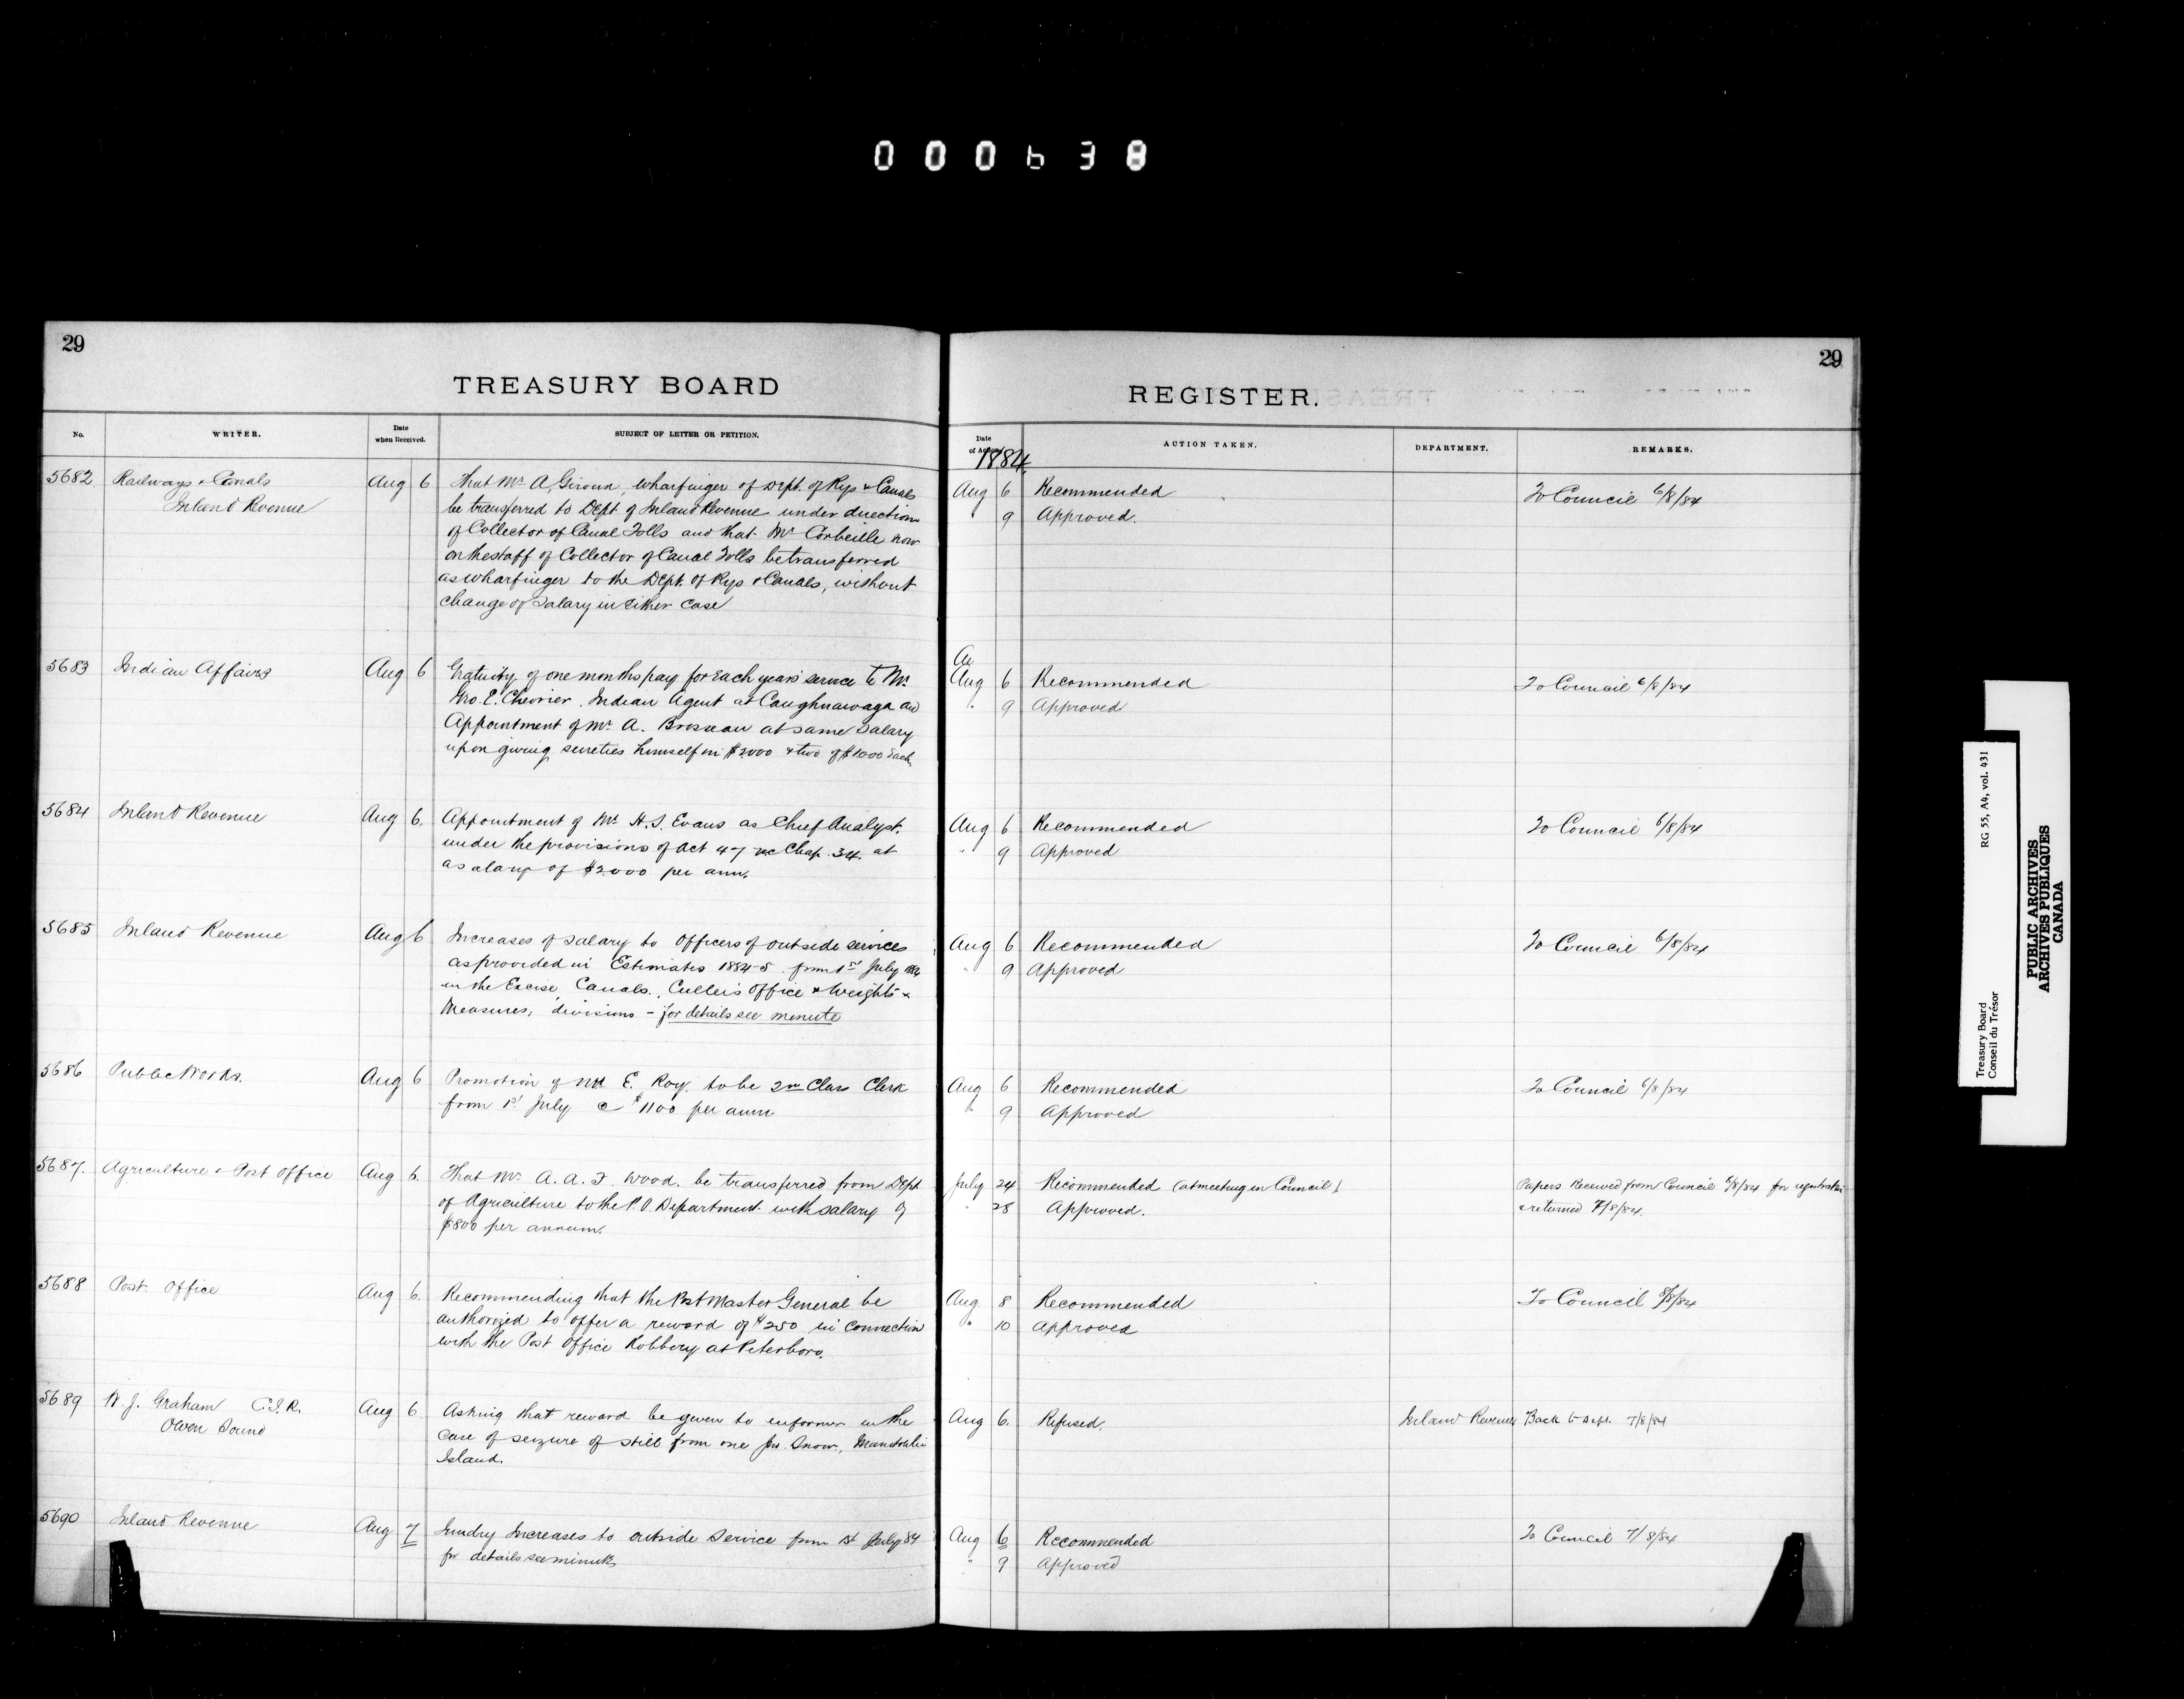 000638
29
TREASURY BOARD
No.
WRITER.
Date
when Received.
SUBJECT OF LETTER OR PETITION.
5682
Railways & Canals
Inland Revenue
Aug 6
That Mr A. Giroux, wharfinger of Dept. of Rys & Canals
be transferred to Dept of Inland Revenue under direction
of Collector of Canal Tolls and that Mr Corbeille now
on the staff of Collector of Canal Tolls be transferred
as wharfinger to the Dept. of Rys & Canals, without
change of salary in either case
5683
Indian Affairs
Aug 6
Gratuity of one months pay for each years service to Mr
Geo. E. Cherrier. Indian Agent at Caughnawaga and
Appointment of Mr A. Brosseau at same salary
upon giving sureties himself in $2000 & two of $1000 each.
5684
Inland Revenue
Aug 6.
Appointment of Mr H. S. Evans as Chief Analyst.
under the provisions of Act 47 Vic Chap. 34. at
a salary of $2000 per ann.
5685
Inland Revenue
Aug 6
Increases of salary to Officers of outside services
as provided in Estimates 1884-5 from 1st July 1884
in the Excise Canals, Culler's Office & Weights &
Measures, divisions - for details see minute
5686
Public Works.
Aug 6
Promotion of Mr E. Roy to be 2nd Class Clerk
from 1st July @ $1100 per ann
5687.
Agriculture & Post Office
Aug 6.
That Mr A. A. F. Wood. be transferred from Dept
of Agriculture to the P.O. Department with salary of
$800 per annum.
5688
Post Office
Aug 6.
Recommending that the Post Master General be
authorized to offer a reward of $250 in connection
with the Post Office Robbery at Peterboro.
5689
W. J. Graham C.I.R.
Owen Sound
Aug 6.
Asking that reward be given to informer in the
case of seizure of still from one Jno. Snow, Manitoulin
Island.
5690
Inland Revenue
Aug 7
Sundry Increases to outside Service from 1st July 84
for details see minute
29
REGISTER.
Date
of Action
ACTION TAKEN.
DEPARTMENT.
REMARKS.
1884
Aug 6 Recommended To Council 6/8/84
" 9 Approved.
Au
Aug 6 Recommended To Council 6/8/84
" 9 Approved
Aug 6 Recommended To Council 6/8/84
" 9 Approved
Aug 6 Recommended To Council 6/8/84
" 9 Approved
Aug 6 Recommended To Council 6/8/84
" 9 Approved
July 24 Recommended (at meeting in Council) Papers Received from Council 6/8/84 for registration
" 28 Approved. & returned 7/8/84.
Aug 8 Recommended To Council 8/8/84
" 10 Approved
Aug 6. Refused. Inland Revenue Back to Dept. 7/8/84
Aug 6 Recommended To Council 7/8/84
" 9 Approved
Treasury Board
Conseil du Trésor
RG 55, A4, vol. 431
PUBLIC ARCHIVES
ARCHIVES PUBLIQUES
CANADA